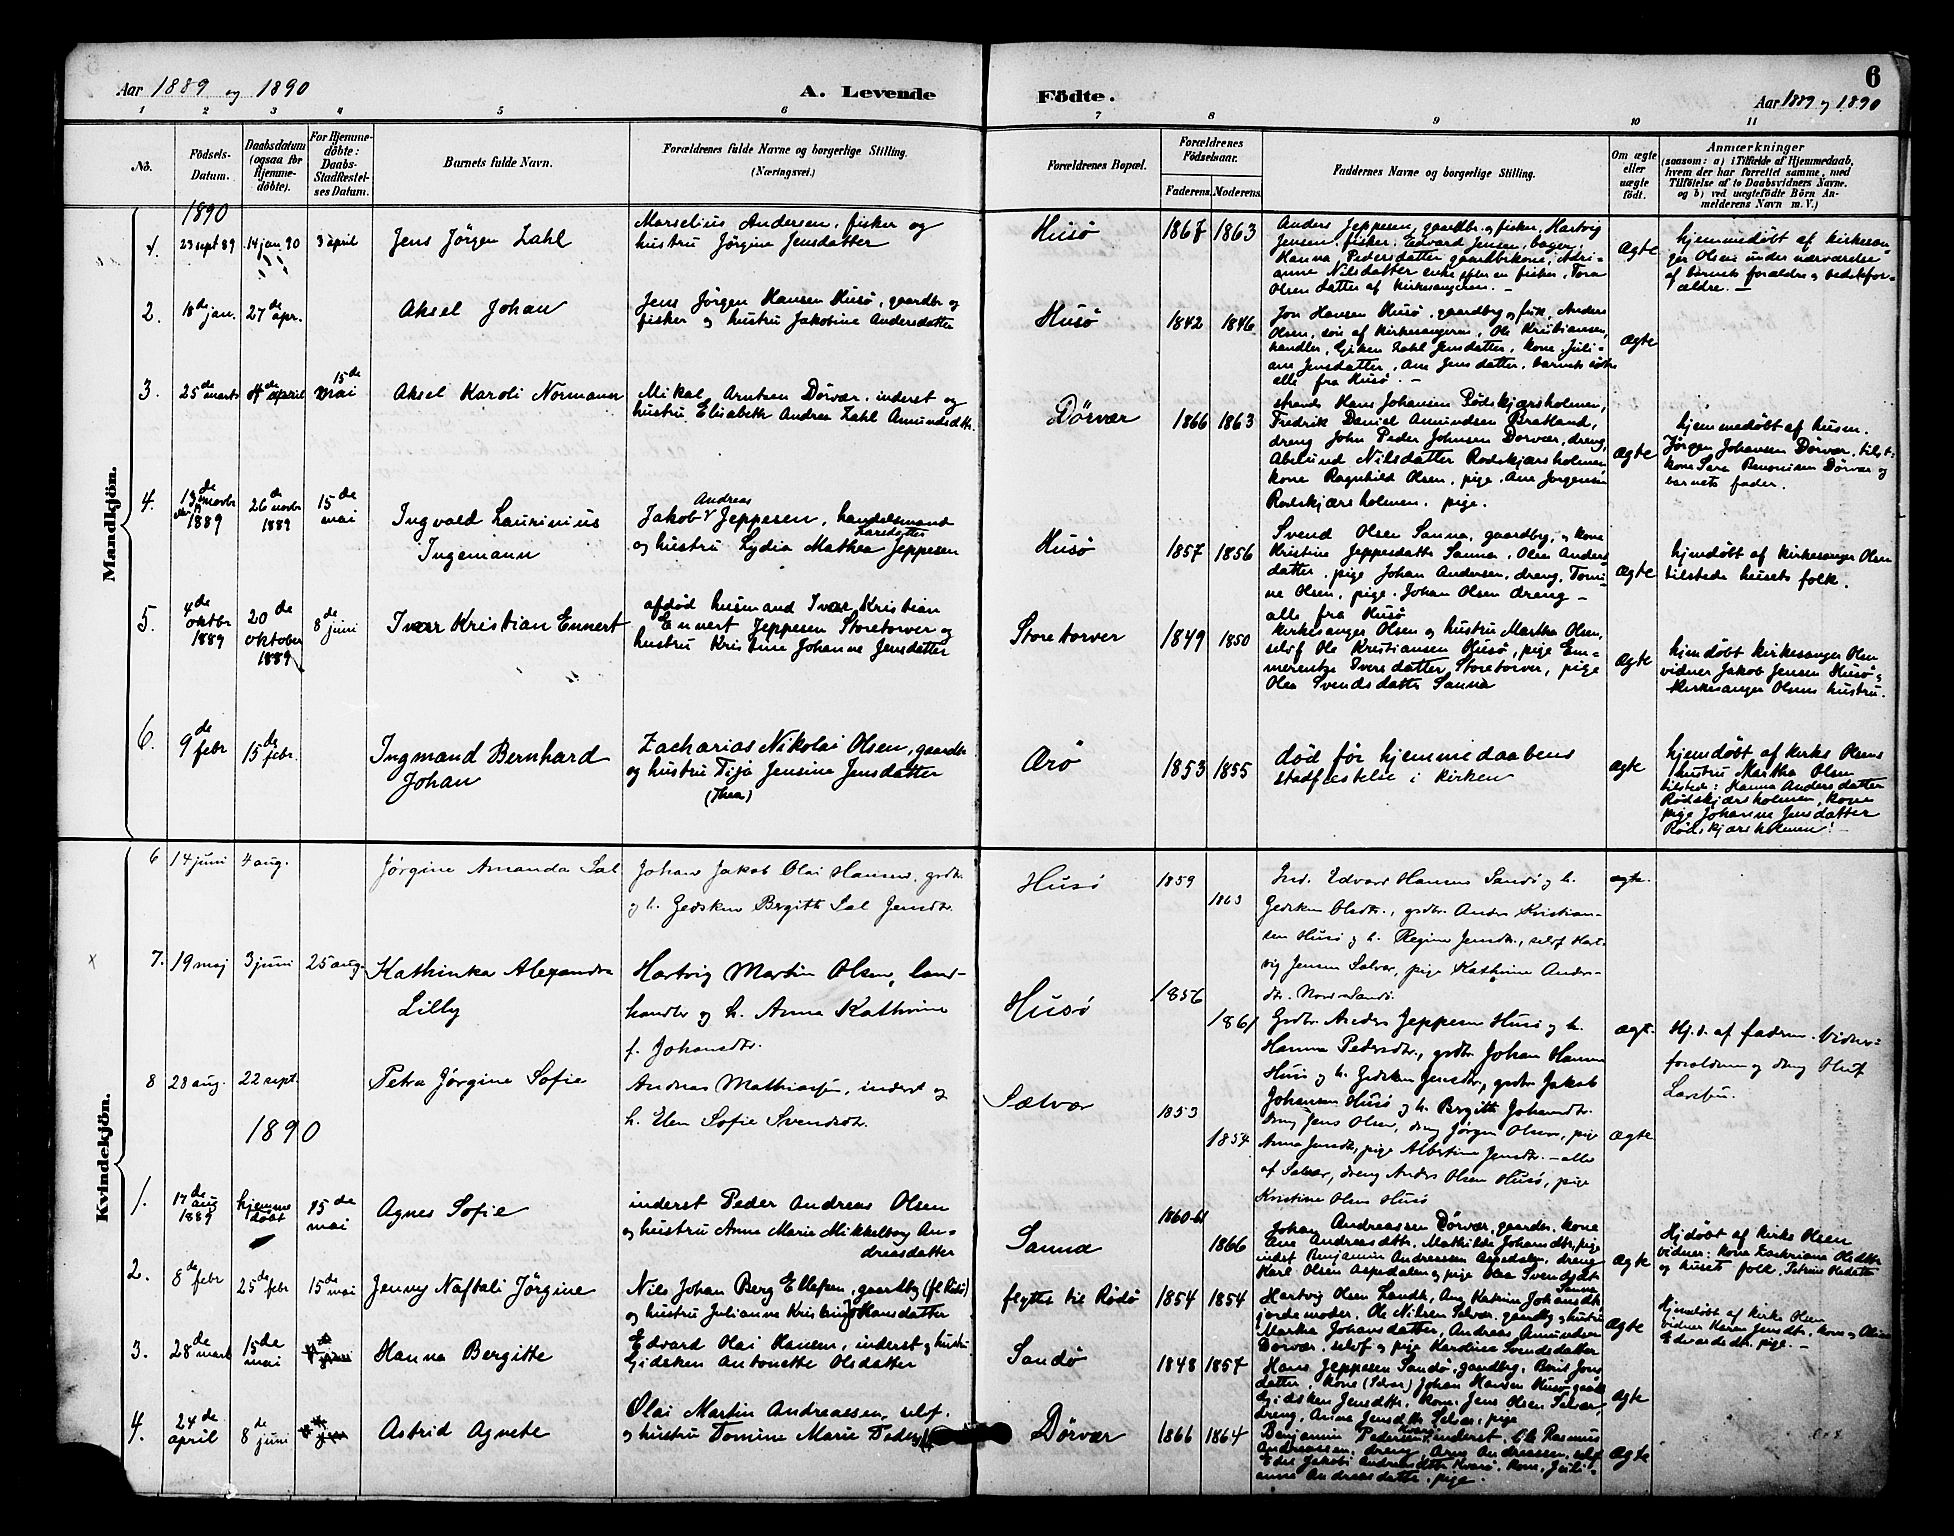 Aar 1889 og 1890
A. Levende Födte.
6
Aar 1889 og 1890
1 2 3 4 5 6 7 8 9 10 11
No.
Födsels-Datum.
Daabsdatum (ogsaa for Hjemme-döbte).
For Hjemme-döbte: Daabs-Stadfæstel-ses Datum.
Barnets fulde Navn.
Forældrenes fulde Navne og borgerlige Stilling.
(Næringsvei.)
Forældrenes Bopæl.
Forældrenes Födselsaar.
Faderens. Moderens.
Faddernes Navne og borgerlige Stilling.
Om ægte eller uægte födt.
Anmærkninger
(saasom: a) i Tilfælde af Hjemmedaab,
hvem der har forrettet samme, med
Tilföielse af to Daabsvidners Navne.
og b) ved uægtefödte Börn An-
melderens Navn m. V.)
Mandkjön.
1890
1. 23 sept 89 14 jan 90 3 april
Jens Jörgen Zahl
Marselius Andersen, fisker og
hustru Jørgine Jensdatter
Husö 1867 1863
Anders Jeppesen, gaardbr. og fisker, Hartvig
Jensen, fisker, Edvard Jensen, bager,
Hanna Pedersdatter gaardbrkone, Adri-
anne Nilsdatter enke efter en fisker, Tora
Olsen datter af kirkesangeren. —
ægte
hjemmedöbt af kirkesan-
ger Olsen under nærværelse
af barnets forældre og bedstefor-
ældre. —
2. 18de jan. 27de apr.
Aksel Johan
Jens Jörgen Hansen Husö, gaardbr og
fisker og hustru Jakobine Andersdatter
Husö 1842 1846
Jon Hansen Husö, gaardbrg og fisk, Anders
Olsen, sön af kirkesangeren, Ole Kristiansen,
handler, Gjeken Zahl Jensdatter, kone, Juli-
ane Jensdatter, Ane Jensdatter, barnets
alle fra Husö. —
ægte
3. 25de marts 4de april 15de mai
Aksel Karoli Normann
Mikal Arntsen Dörvær, inderst og
hustru Elisabeth Andrea Zahl Amundsdtr.
Dörvær 1866 1863
Hans Johansen Rödskjærsholmen,
Fredrik Daniel Amundsen Bratland,
dreng John Peder Johnsen Dorvær, dreng,
Abelund Nilsdatter Rødskjærsholmen
kone Ragnhild Olsen, pige, Ane Jørgensen
Rødskjærsholmen. pige.
ægte
hjemmedöbt af husm.
Jörgen Johansen Dörvær, tilst.:
kone Sara Benonisen Dörvær og
barnets fader.
4. 13de novbr 1889 26de novbr 1889 15de mai
Ingvald Laurinius
Ingemann
Jakob Andreas Jeppesen, handelsmand
og hustru Lydia Mathea Larsdatter Jeppesen
Husö 1857 1856
Svend Olsen Sanna, gaardbrg, og kone
Kristine Jeppesdatter Sanna, Olea Anders
datter, pige Johan Andersen, dreng, Tomi-
ne Olsen, pige, Johan Olsen dreng —
alle fra Husö
ægte
hjemdøbt af kirkesanger Olsen
tilstede husets folk.
5. 4de oktbr 1889 20de oktober 1889 8de juni
Ivar Kristian Ennert
afdöd husmand Ivar Kristian
Ennert Jeppesen Storetorver og
hustru Kristine Johanne Jensdatter
Storetorver 1849 1850
kirkesanger Olsen og hustru Martha Olsen,
selvf Ole Kristiansen Husö, pige Em-
merentze Iversdatter Storetorver, pige
Olea Svendsdatter Sanna
ægte
hjemdøbt kirkesanger Olsen
vidner Jakob Jensen Husö og
kirkesanger Olsens hustru.
6. 9de febr 15de febr.
Ingmand Bernhard
Johan
Zacharias Nikolai Olsen, gaardbr
og hustru Tija Jensine Jensdatter
(Thea)
Ærö 1853 1855
död før hjemmedaabens
stadfæstelse i kirken
ægte
hjemdøbt af kirks Olsens
hustru Martha Olsen
tilstede: Hanna Andersdatter
Rødskjærsholmen, kone
pige Johanne Jensdatter
Rødskjærsholmen. —
Kvindekjön.
6 14 juni 4 aug.
Jörgine Amanda Sal
Johan Jakob Olai Hansen, grdbr.
og h. Gedsken Bergitte Sal Jensdtr.
Husö 1859 1863
Ind. Edvard Hansen Sandö og h.
Gedsken Olsdtr., grdbr Anders Kristian-
sen Husö og h. Regine Jensdtr., selvf Hart-
vig Jensen Salvær, pige Kathrine Anders-
dtr.
ægte.
7. 19 maj 3 juni 25 aug.
Kathinka Alexandra
Lilly
Hartvig Martin Olsen, land-
handler og h. Anna Kathrine
f. Johansdtr.
Husö 1856 1861
Grdbr Anders Jeppesen Husö og h.
Hanna Pedersdtr., grdbr Johan Hansen
Husö og h. Gedsken Jensdtr, grdbr Jakob
Johansen Husö og h. Bergitte Johansdtr.
ægt.
Hj.d. af faderen. Vidner:
forældrene og dreng Oluf
Larsen.
8 28 aug. 22 sept.
Petra Jörgine Sofie
Andreas Mathiassen, inderst og
h. Elen Sofie Svendsdtr.
Sælvær 1853 1854
dreng Jens Olsen, dreng Jörgen Olsen, pige
Anna Jensdtr, pige Albertine Jensdtr. — alle
af Salvær, dreng Anders Olsen Husö, pige
Kristine Olsen Husö
ægte
1890
1. 17de aug 1889 hjemmedöbt 15de mai
Agnes Sofie
inderst Peder Andreas Olsen
og hustru Anne Marie Mikkelborg An-
dreasdatter
Sanna 1860-61 1866
Johan Andreassen Dörvær, gaardbr. kone
Ane Andreasdtr. Mathilde Johansdtr, pige
inderst Benjamin Andreassen Aspedalen, dreng
Karl Olsen Aspedalen og pige Olea Svendsdtr
Sanna
ægte
Hjdöbt af kirks Olsen
vidner: kone Zachriana Olsdtr
og huset folk. Petrine Olsdatter
2. 8de febr 25de febr 15de mai
Jenny Naftali Jörgine
Nils Johan Berg Ellefsen, gaardbg (fl. Rödö)
og hustru Julianne Kristine Johansdatter
flyttet til Rödö 1854 1854
Hartvig Olsen Landh, Ane Katrine Johansdtr
jordemoder, Ole Nilsen Selvær, gaardbg og hustru
Martha Johansdatter, Andreas Amundsen
Dörvær, selvf og pige Karoline Svendsdatter
ægte
Hjemdöbt af kirks Olsen
vidner Karen Jensdtr. kone og Oline
Edvardsdtr. pige. —
3. 28de marts 15de mai
Hanna Bergitte
Edvard Olai Hansen, inderst og hustru
Gidsken Antonette Olsdatter
Sandö 1848 1857
Hans Jeppesen Sandö, gaardbrg, Berit Jens
datter, kone (Selvær) Johan Hansen Husö
Gidsken Jensdtr, kone, Jens Olsen Selvær,
dreng, Anna Jensdtr Selvær, pige
ægte
4. 24de april 8de juni
Astrid Agnete
Olai Martin Andreassen, selvf.
og hustru Tomine Marie Peders
Dörvær 1866 1864
Benjamin Pedersen Kvarø inderst, Ole Rasmus
Andreassen, dreng, Arne Andreassen, selvf
Edel Jakobi Andreasdtr Kvarö, kone, Juli-
anne Andreasdatter, pige.
ægte